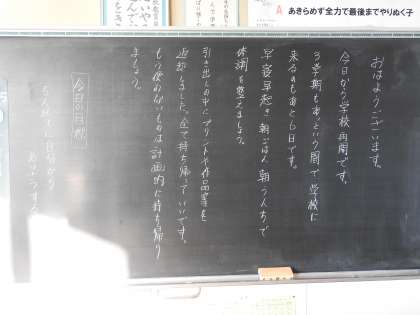 A あきらめず全力で最後までやりぬく子
おはようございます。
今日から学校再開です。
3学期もあっという間で学校に
来るのもあと6日です。
早寝早起き朝ごはん朝うんちで
体調を整えましょう。
引き出しの中にプリントや作品等を
返却しました。全て持ち帰っていいです。
もう使わないものは計画的に持ち帰り
ましょう。
今日の目標